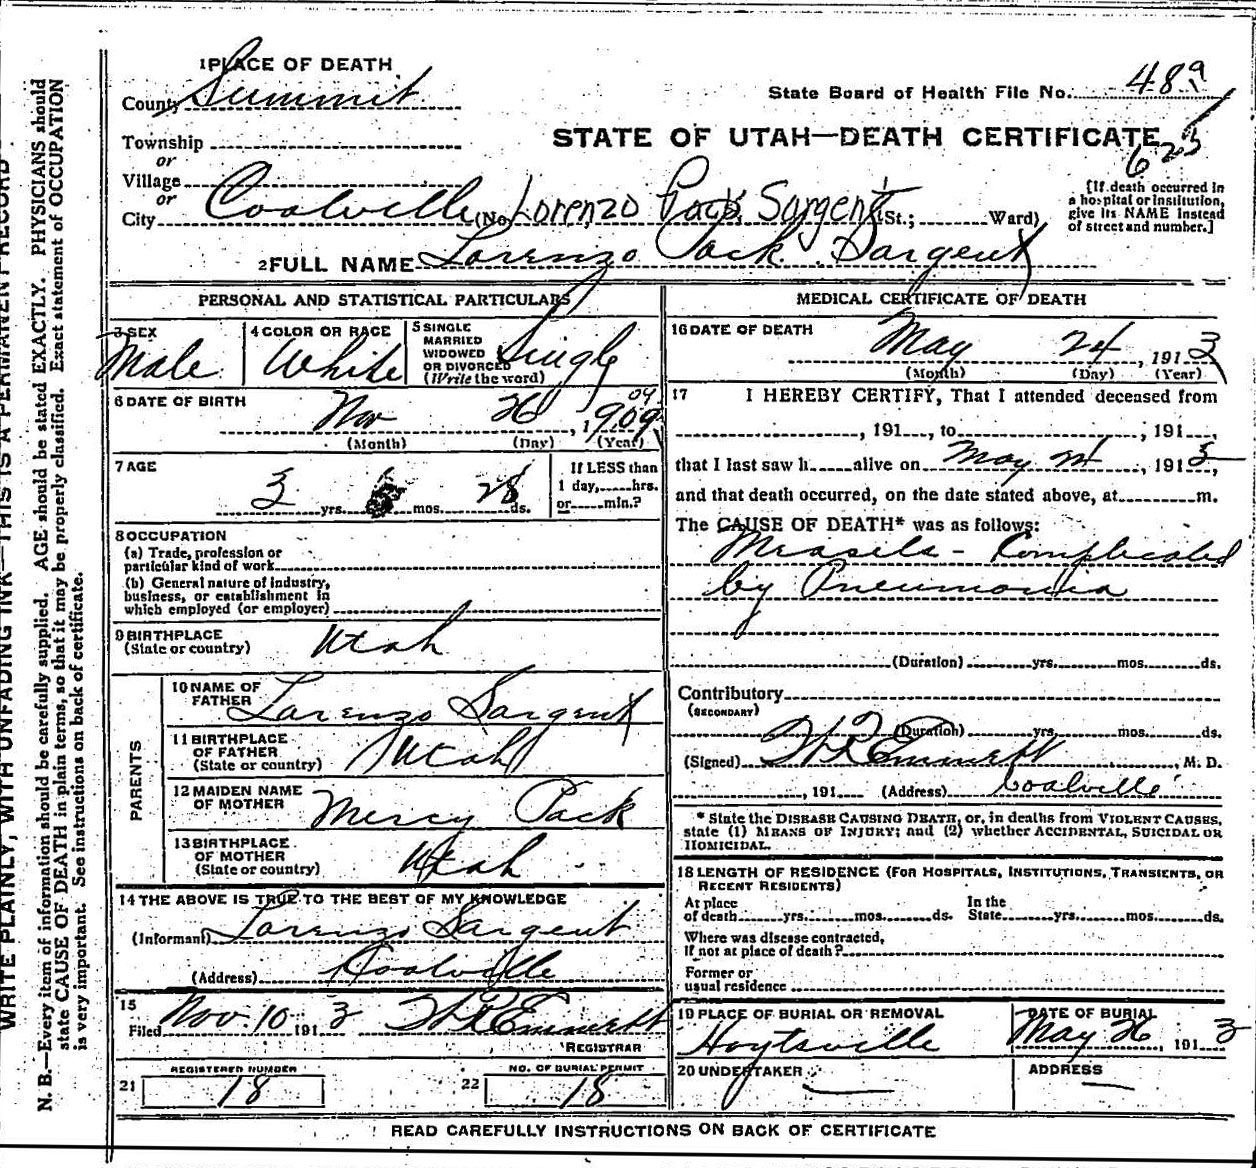 WRITE PLAINLY, WITH UNFADING INK—THIS IS A PERMANENT RECORD
N. B.—Every item of information should be carefully supplied. AGE should be stated EXACTLY. PHYSICIANS should
state CAUSE OF DEATH in plain terms, so that it may be properly classified. Exact statement of OCCUPATION
is very important. See instructions on back of certificate.
1 PLACE OF DEATH
County Summit
State Board of Health File No. 489
STATE OF UTAH—DEATH CERTIFICATE
625
Township
or
Village
or
City Coalville (No. Lorenzo Pack Sargent St.; Ward)
[If death occurred in
a hospital or institution,
give its NAME instead
of street and number.]
2 FULL NAME Lorenzo Pack Sargent
PERSONAL AND STATISTICAL PARTICULARS
3 SEX
Male
4 COLOR OR RACE
White
5 SINGLE
MARRIED
WIDOWED
OR DIVORCED
(Write the word)
Single
6 DATE OF BIRTH
Nov 26, 1909
09
(Month) (Day) (Year)
7 AGE
3 yrs. mos. 28 ds.
If LESS than
1 day, hrs.
or min.?
8 OCCUPATION
(a) Trade, profession or
particular kind of work
(b) General nature of industry,
business, or establishment in
which employed (or employer)
9 BIRTHPLACE
(State or country) Utah
PARENTS
10 NAME OF
FATHER Lorenzo Sargent
11 BIRTHPLACE
OF FATHER
(State or country) Utah
12 MAIDEN NAME
OF MOTHER Mercy Pack
13 BIRTHPLACE
OF MOTHER
(State or country) Utah
14 THE ABOVE IS TRUE TO THE BEST OF MY KNOWLEDGE
(Informant) Lorenzo Sargent
(Address) Coalville
15
Filed Nov. 10 1913 Emmett
REGISTRAR
REGISTERED NUMBER
21 18
NO. OF BURIAL PERMIT
22 18
MEDICAL CERTIFICATE OF DEATH
16 DATE OF DEATH
May 24, 1913
(Month) (Day) (Year)
17 I HEREBY CERTIFY, That I attended deceased from
, 191 , to , 191 ,
that I last saw h alive on May 24, 1913,
and that death occurred, on the date stated above, at m.
The CAUSE OF DEATH* was as follows:
Measels - Complicated
by Pneumonia
(Duration) yrs. mos. ds.
Contributory
(SECONDARY)
(Duration) yrs. mos. ds.
(Signed) Emmett, M. D.
, 191 (Address) Coalville
* State the DISEASE CAUSING DEATH, or, in deaths from VIOLENT CAUSES,
state (1) MEANS OF INJURY; and (2) whether ACCIDENTAL, SUICIDAL OR
HOMICIDAL.
18 LENGTH OF RESIDENCE (FOR HOSPITALS, INSTITUTIONS, TRANSIENTS, OR
RECENT RESIDENTS)
At place
of death yrs. mos. ds.
In the
State yrs. mos. ds.
Where was disease contracted,
if not at place of death?
Former or
usual residence
19 PLACE OF BURIAL OR REMOVAL
Hoytsville
DATE OF BURIAL
May 26, 1913
20 UNDERTAKER
ADDRESS
READ CAREFULLY INSTRUCTIONS ON BACK OF CERTIFICATE